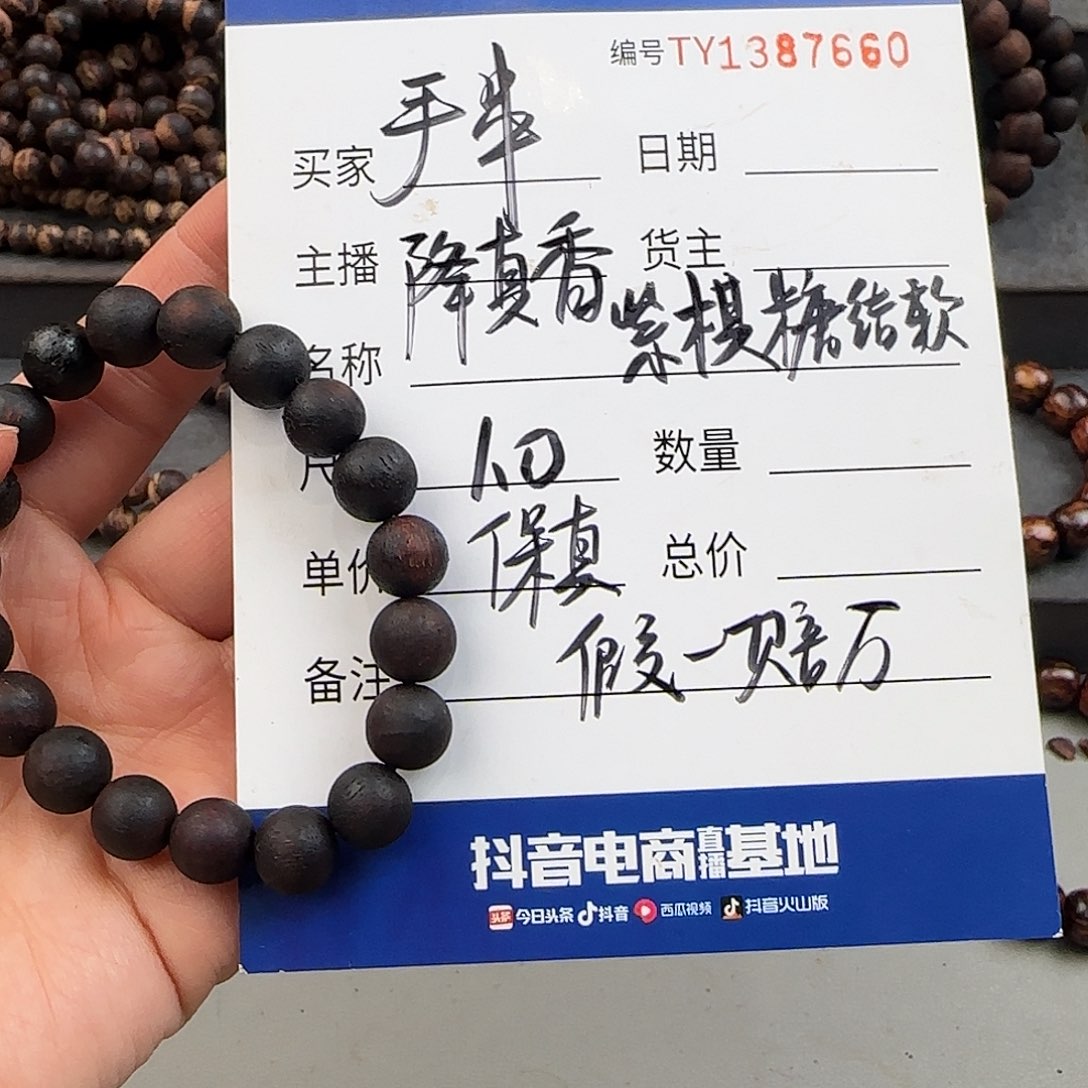 编号TY1387660
买家 手串 日期
主播 降真香 货主
名称 紫棋糖结款
尺
单价 保真 总价
数量
备注 假一赔万
抖音电商直播基地
头条 今日头条 抖音 西瓜视频 抖音火山版